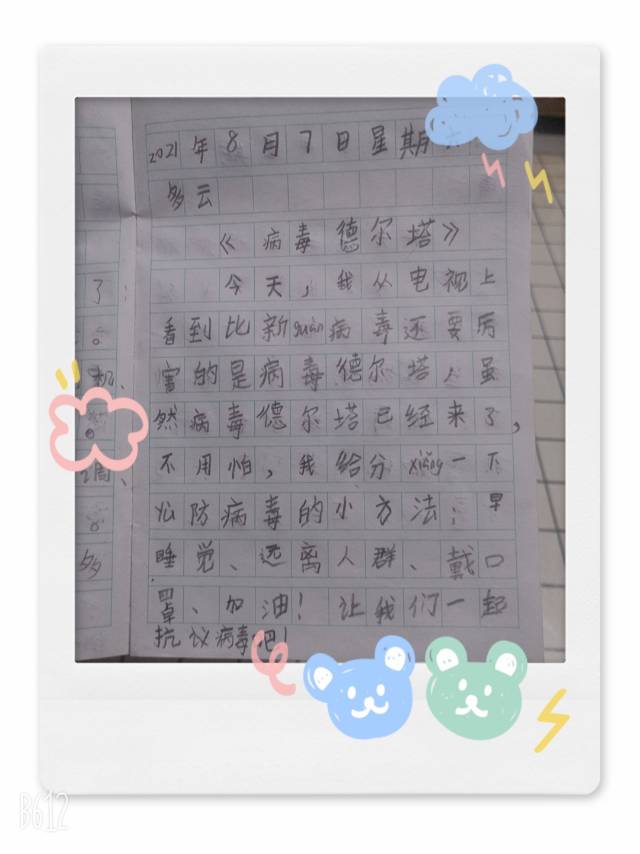 2021年8月7日星期
多云
《病毒德尔塔》
今天,我从电视上
看到比新guān病毒还要厉
害的是病毒德尔塔,虽
然病毒德尔塔已经来了,
不用怕,我给分xiǎng一下
心防病毒的小方法:早
睡觉、远离人群、戴口
罩、加油!让我们一起
抗议病毒吧!
了
。
机、
。
周、
。
多
B612